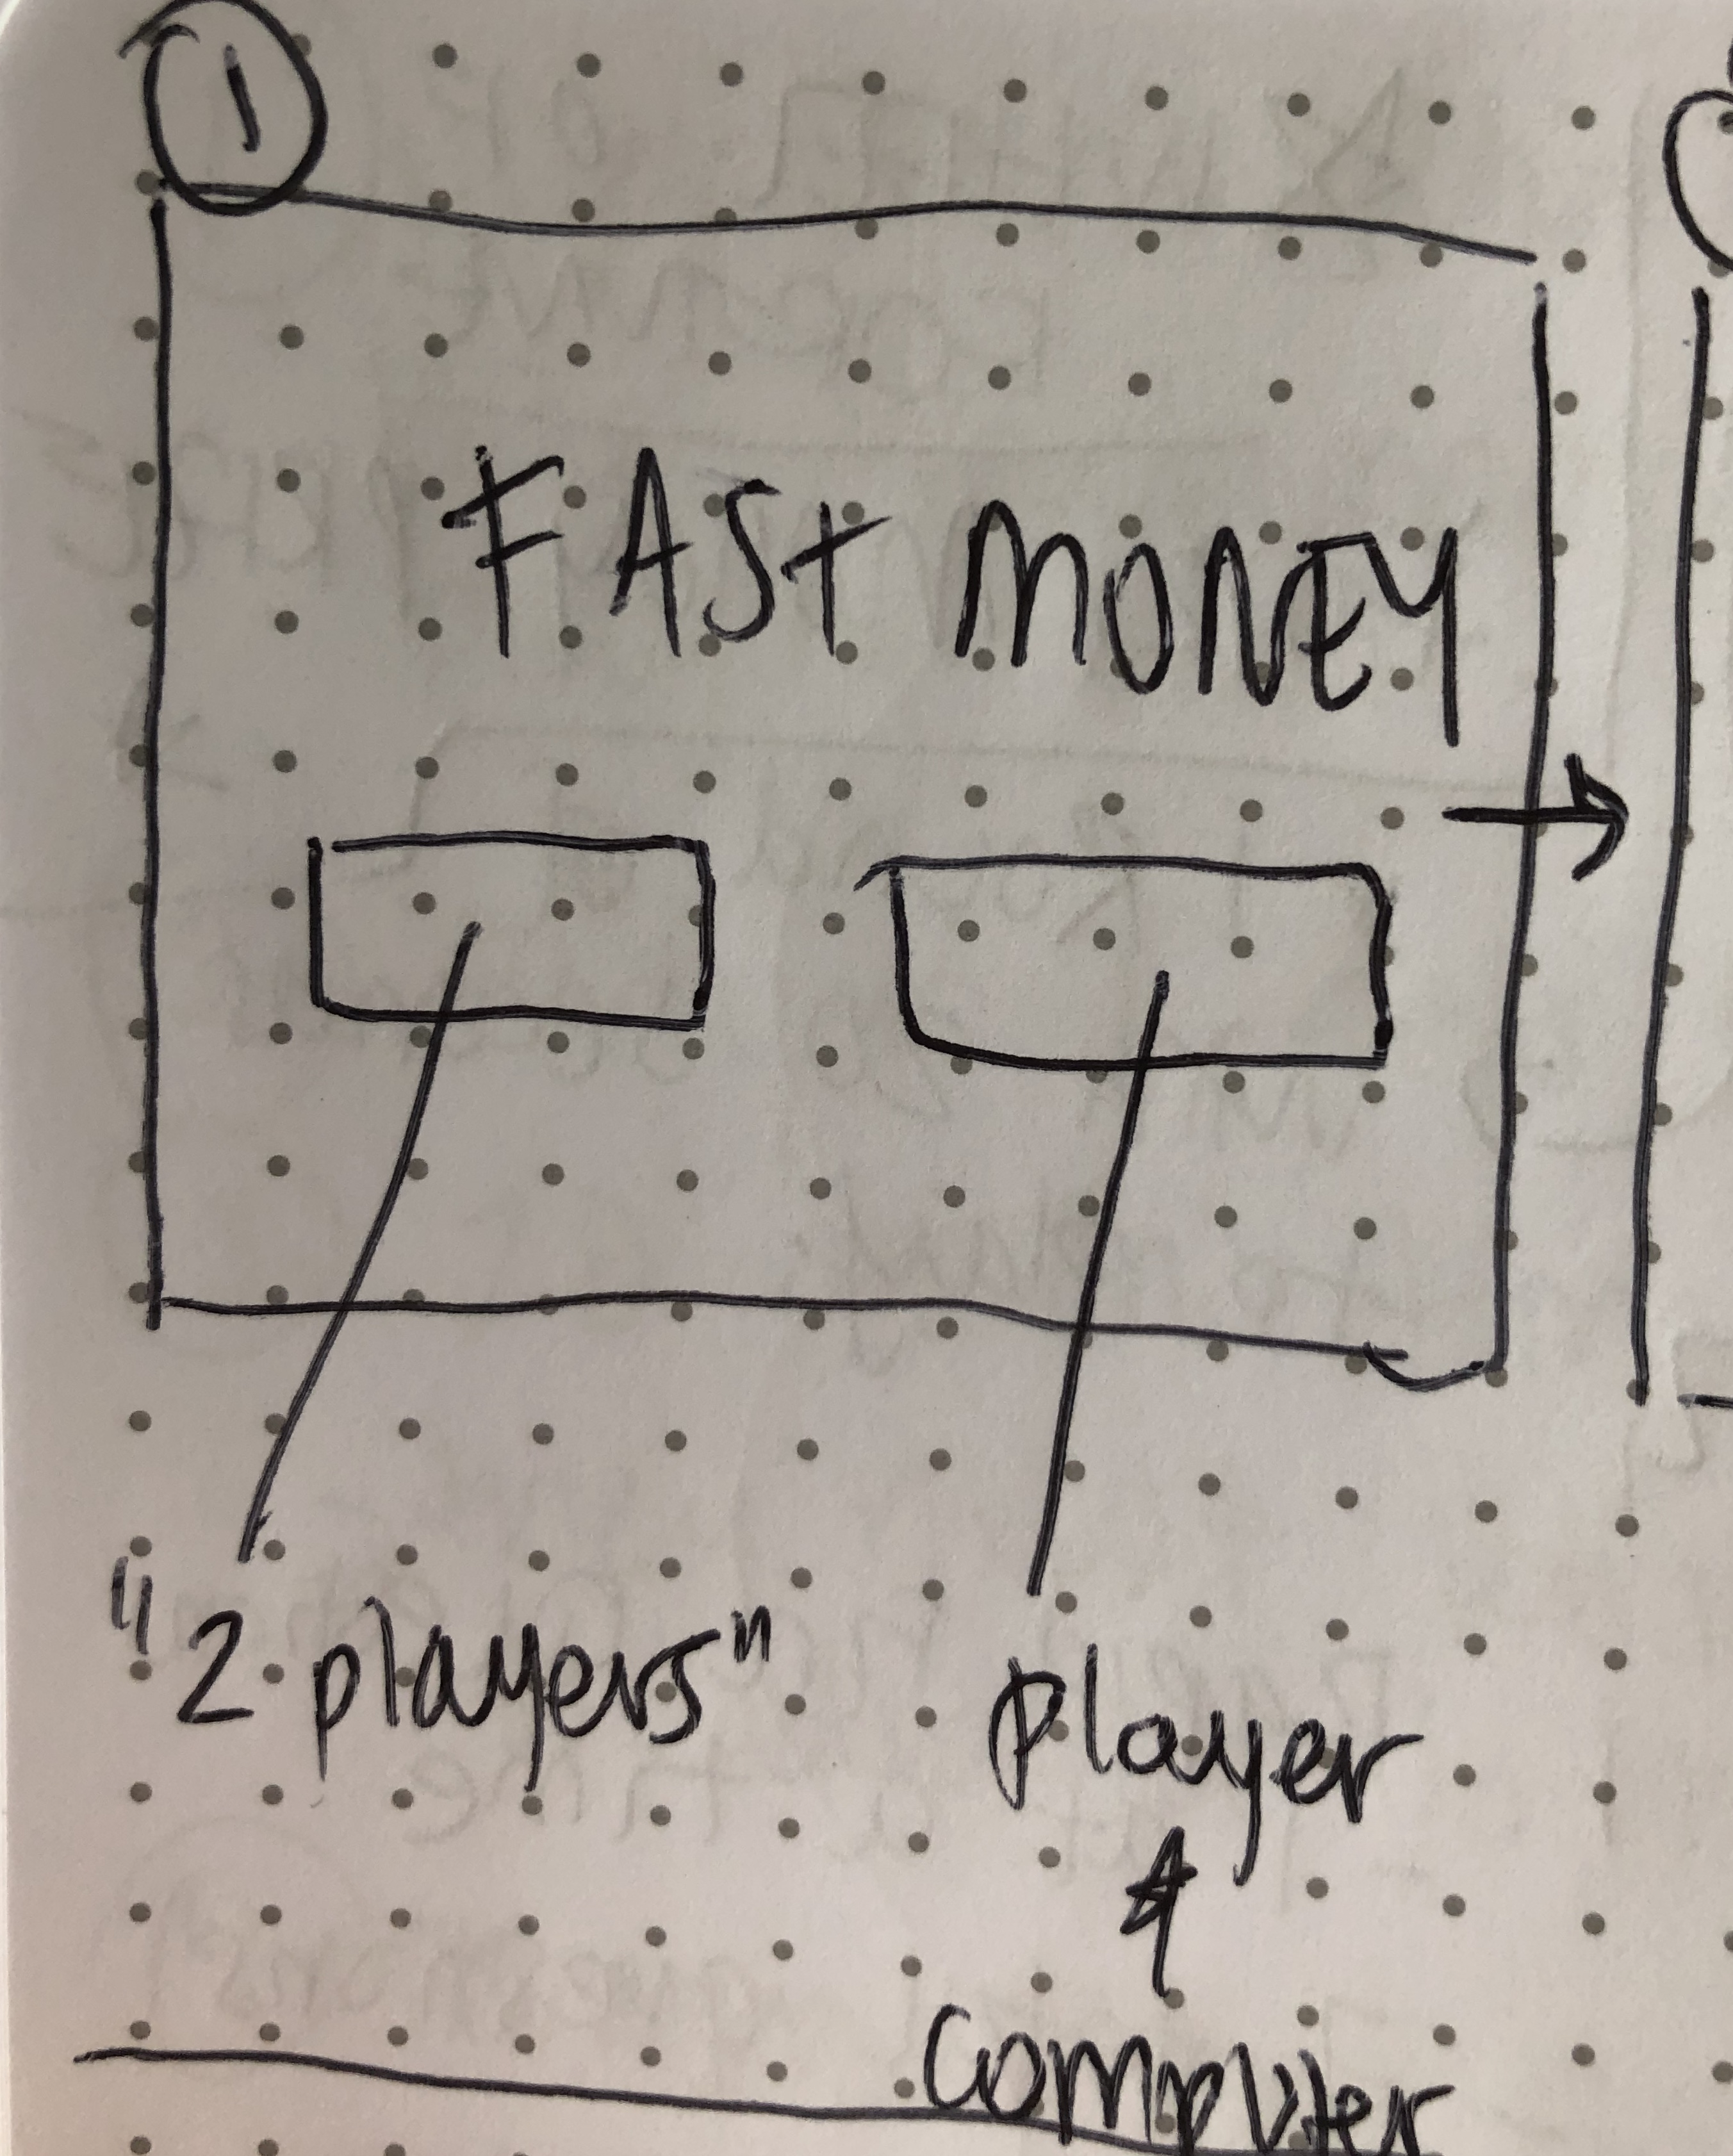 1
FAST MONEY
"2 players"
Player
&
Computer